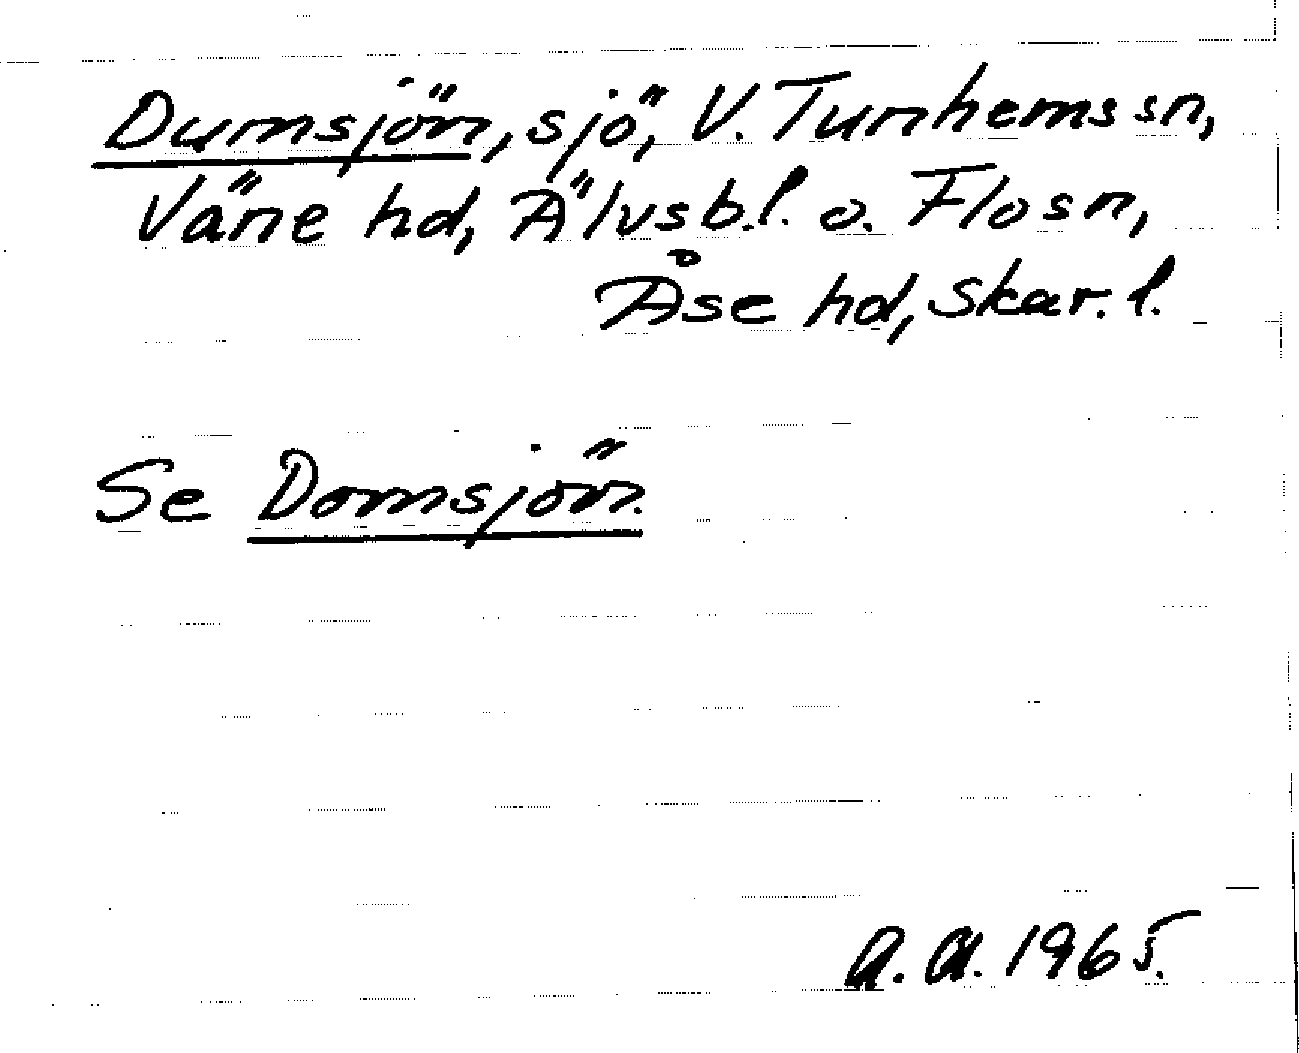 Dumsjön, sjö, V. Tunhems sn,
Väne hd, Älvsb. l. o. Flo sn,
Åse hd, Skar. l.
Se Domsjön.
A. A. 1965.